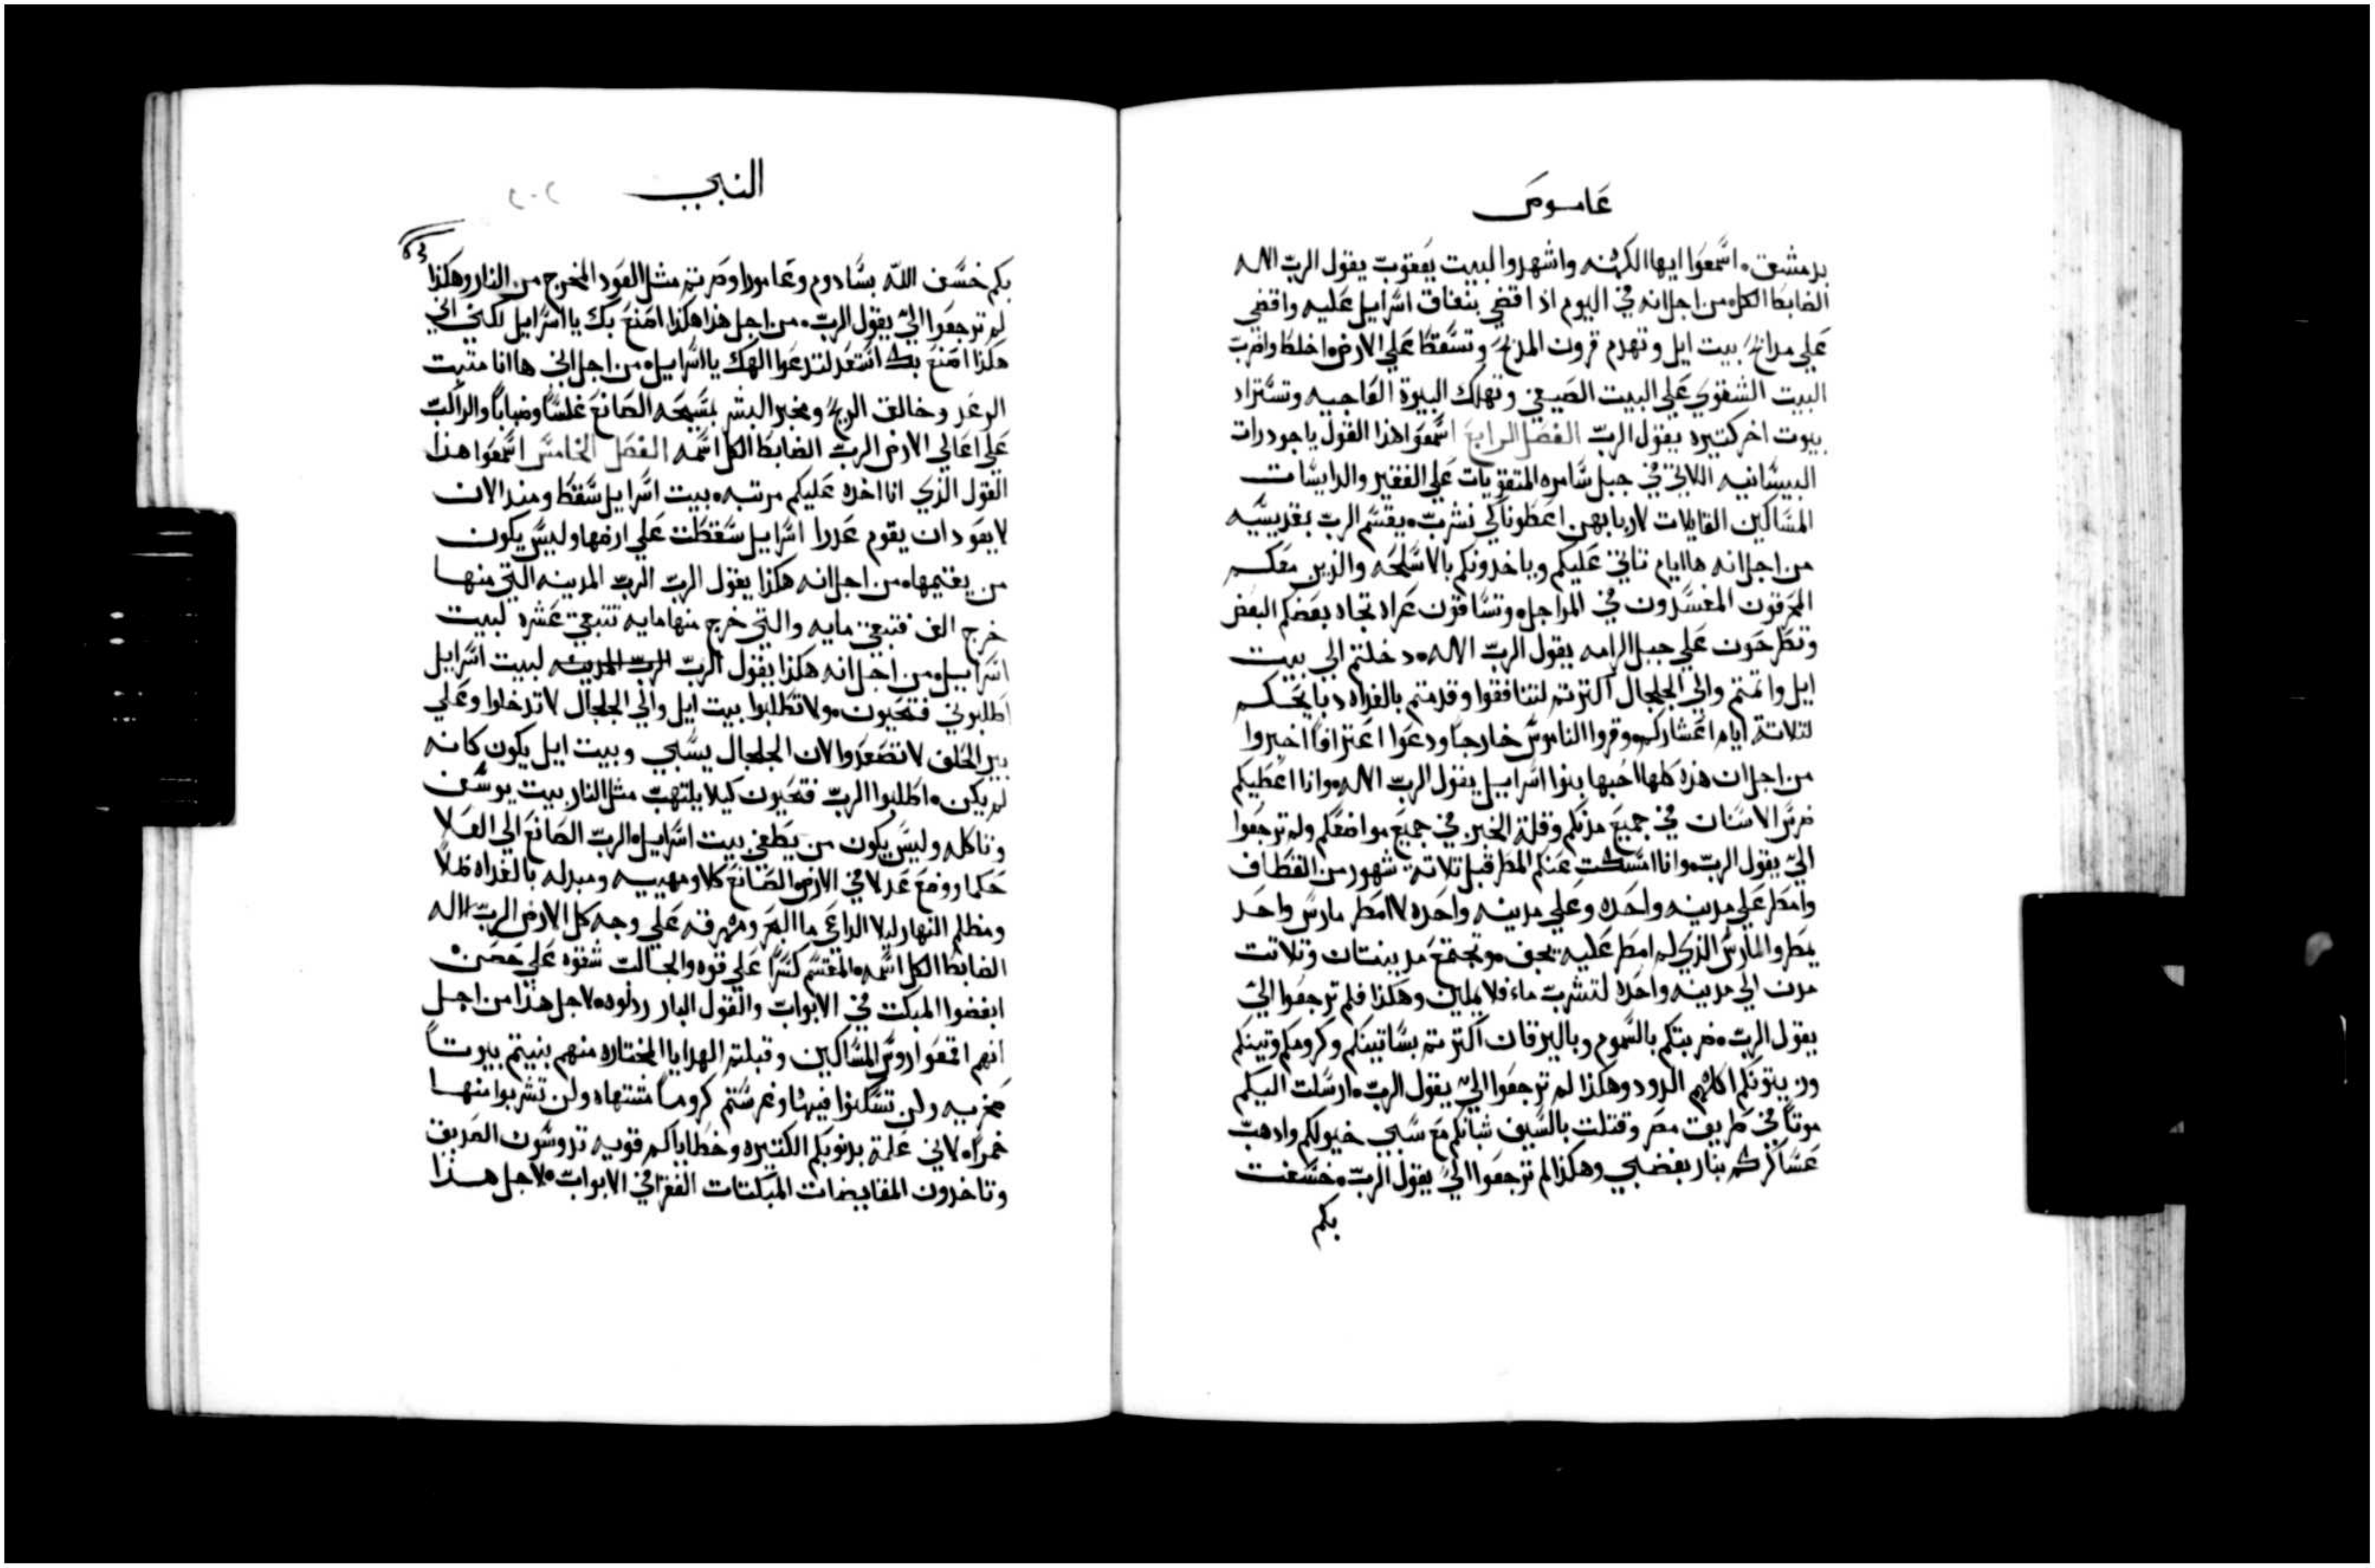 عاموص
بدمشق. اسمعوا ايها الكهنه واشهدوا لبيت يعقوب يقول الرب الاله
الضابط الكل من اجل انه في اليوم اذا اقضي بنفاق اسراييل عليه واقضي
علي مدابح بيت ايل وتهدم قرون المدبح وتسقط علي الارض واخلط واضرب
البيت الشتوي علي البيت الصيفي وتهلك البيوة العاجيه وتستزاد
بيوت اخر كتيره يقول الرب الفصل الرابع اسمعوا هذا القول يا جودرات
البيسانيه اللاتي في جبل سامره المتقويات علي الفقير والدايسات
المساكين القايلات لاربابهن اعطونا لكي نشرب. يقسم الرب بقديسيه
من اجل انه ها ايام تاتي عليكم وياخدونكم بالاسلحه والدين معكم
المحرقون المفسدون في المراجل. وتساقون عراه تجاه بعضكم البعض
وتطرحون علي جبل الرامه يقول الرب الاله. دخلتم الي بيت
ايل واتمتم والي الجلجال اكترتم لتنافقوا وقدمتم بالغداه دبايحكم
لتلاتة ايام اعشاركم. وقروا الناموس خارجاً ودعوا اعترافاً اخبروا
من اجل ان هذه كلها احبها بنوا اسراييل يقول الرب الاله. وانا اعطيكم
ضرس الاسنان في جميع مدنكم وقلة الخبز في جميع مواضعكم ولم ترجعوا
اليّ يقول الرب. وانا امسكت عنكم المطر قبل تلاتة شهور من القطاف
وامطر علي مدينه واحده وعلي مدينه واحده لا امطر مارس واحد
يمطر والمارس الذي لم امطر عليه يجف. وتجتمع مدينتان وتلاتت
مدن الي مدينه واحده لتشرب ماء فلا يملين وهكذا فلم ترجعوا اليّ
يقول الرب. ضربتكم بالسموم وباليرقان اكترتم بساتينكم وكرومكم وتينكم
وزيتونكم اكلهم الدود وهكذا لم ترجعوا اليّ يقول الرب. ارسلت اليكم
موتاً في طريق مصر وقتلت بالسيف شبانكم مع سبي خيولكم وادهب
عساكركم بنار بغضبي وهكذا لم ترجعوا اليّ يقول الرب. خسفت
بكم
النبي
بكم خسف الله بسادوم وعامورا وصرتم مثل العود المخرج من النار وهكذا
لم ترجعوا اليّ يقول الرب. من اجل هذا هكذا اصنع بك يا اسراييل لكني اني
هكذا اصنع بك استعد لتدعوا الهك يا اسراييل. من اجل اني ها انا متبت
الرعد وخالق الريح ومخبر البشر بمسيحه الصانع غلساً وضباباً والراكب
علي اعالي الارض الرب الضابط الكل اسمه الفصل الخامس اسمعوا هذا
القول الذي انا اخده عليكم مرتبه. بيت اسراييل سقط ومند الان
لا يعود ان يقوم عدرا اسراييل سقطت علي ارضها وليس يكون
من يقيمها. من اجل انه هكذا يقول الرب الرب المدينه التي منها
خرج الف فتبقي مايه والتي خرج منها مايه تتبقي عشره لبيت
اسراييل. من اجل انه هكذا يقول الرب الرب المدينه لبيت اسراييل
اطلبوني فتحيون. ولا تطلبوا بيت ايل والي الجلجال لا تدخلوا وعلي
بير الحلف لا تصعدوا لان الجلجال يسبي وبيت ايل يكون كانه
لم يكن. اطلبوا الرب فتحيون كيلا يلتهب مثل النار بيت يوسف
وتاكله وليس يكون من يطفي بيت اسراييل. الرب الصانع الي العلا
حكما. ووضع عدلا في الارض. الصانع كلا ومهييه ومبدله بالغداه ظلاً
ومظلم النهار ليلا الداعي ما البحر ومهرقه علي وجه كل الارض الرب الاله
الضابط الكل اسمه. المقسم كسراً علي قوه والجالب شقوه علي حصن
ابغضوا المبكت في الابواب والقول البار ردلوه. لاجل هذا من اجل
انهم اقمعوا روس المساكين وقبلتم الهدايا المختاره منهم بنيتم بيوتاً
محربيه ولن تسكنوا فيها وغرستم كروماً مشتهاه ولن تشربوا منها
خمراً. لاني علمة بدنوبكم الكتيره وخطاياكم قويه تدوسون الصديق
وتاخدون المقايضات المبكتات الفقرا في الابواب. لاجل هذا